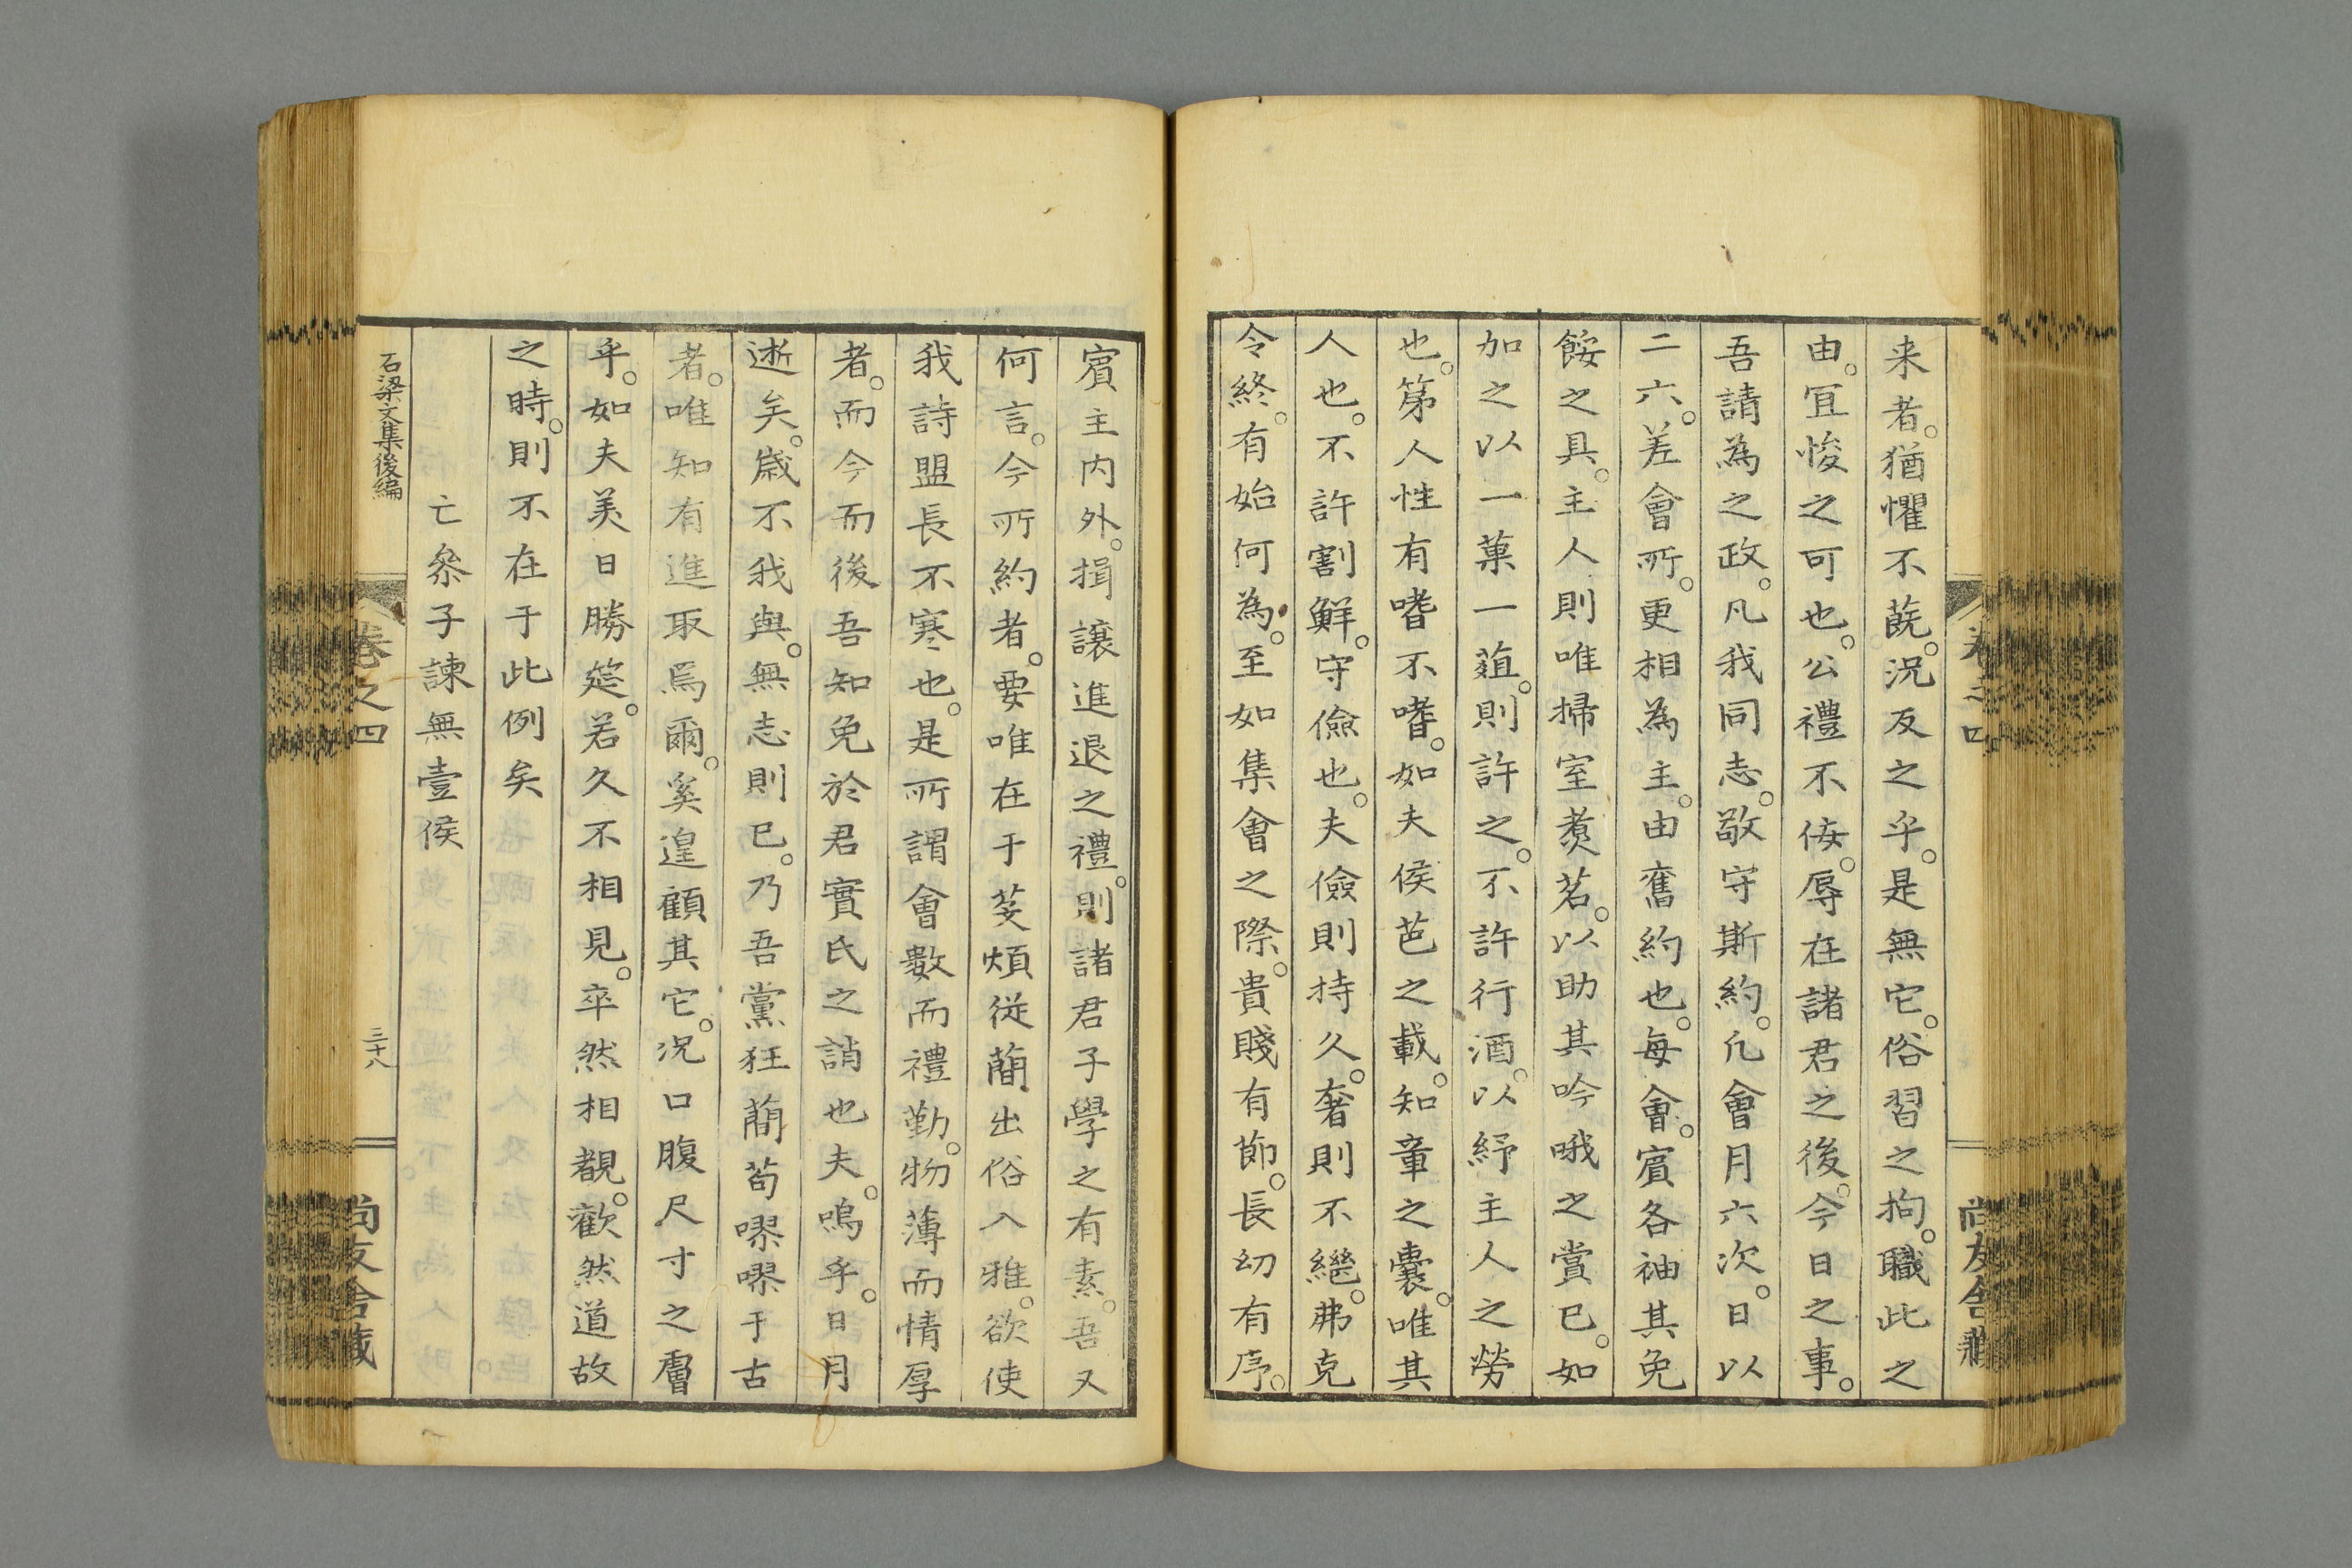 来者。猶懼不蔇。況反之乎。是無它。俗習之拘。職此之
由。冝悛之可也。公禮不侮。辱在諸君之後。今日之事。
吾請為之政。凡我同志。敬守斯約。凢會月六次。日以
二六。差會所。更相為主。由舊約也。每會。賓各袖其免
餒之具。主人則唯掃室煑茗。以助其吟哦之賞已。如
加之以一菓一葅。則許之。不許行酒。以紓主人之勞
也。第人性有嗜不嗜。如夫侯芭之載。知章之囊。唯其
人也。不許割鮮。守儉也。夫儉則持久。奢則不繼。弗克
令終。有始何為。至如集會之際。貴賤有節。長幼有序。
賓主内外。揖讓進退之禮。則諸君子學之有素。吾又
何言。今所約者。要唯在于芟煩従蕳出俗入雅。欲使
我詩盟長不寒也。是所謂會數而禮勤。物薄而情厚
者。而今而後吾知免於君實氏之誚也夫。嗚乎。日月
逝矣。歳不我與。無志則已。乃吾黨狂蕳苟嘐嘐于古
者。唯知有進取焉爾。奚遑顧其它。況口腹尺寸之膚
乎。如夫美日勝筵。若久不相見。卒然相覩。歡然道故
之時。則不在于此例矣
亡叅子諫無壹侯
石梁文集後編
卷之四
三十八
尚友舎蔵